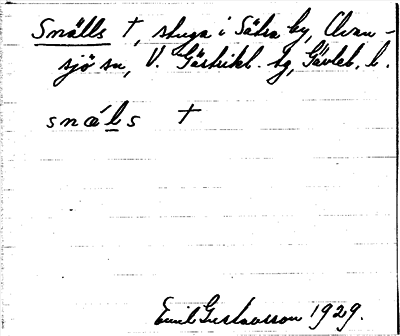 Snälls †, stuga i Sätra by, Ovan-
sjö sn, V. Gästrikl. tg, Gävleb. l.
snæ´ls †
Emil Gustavsson 1929.